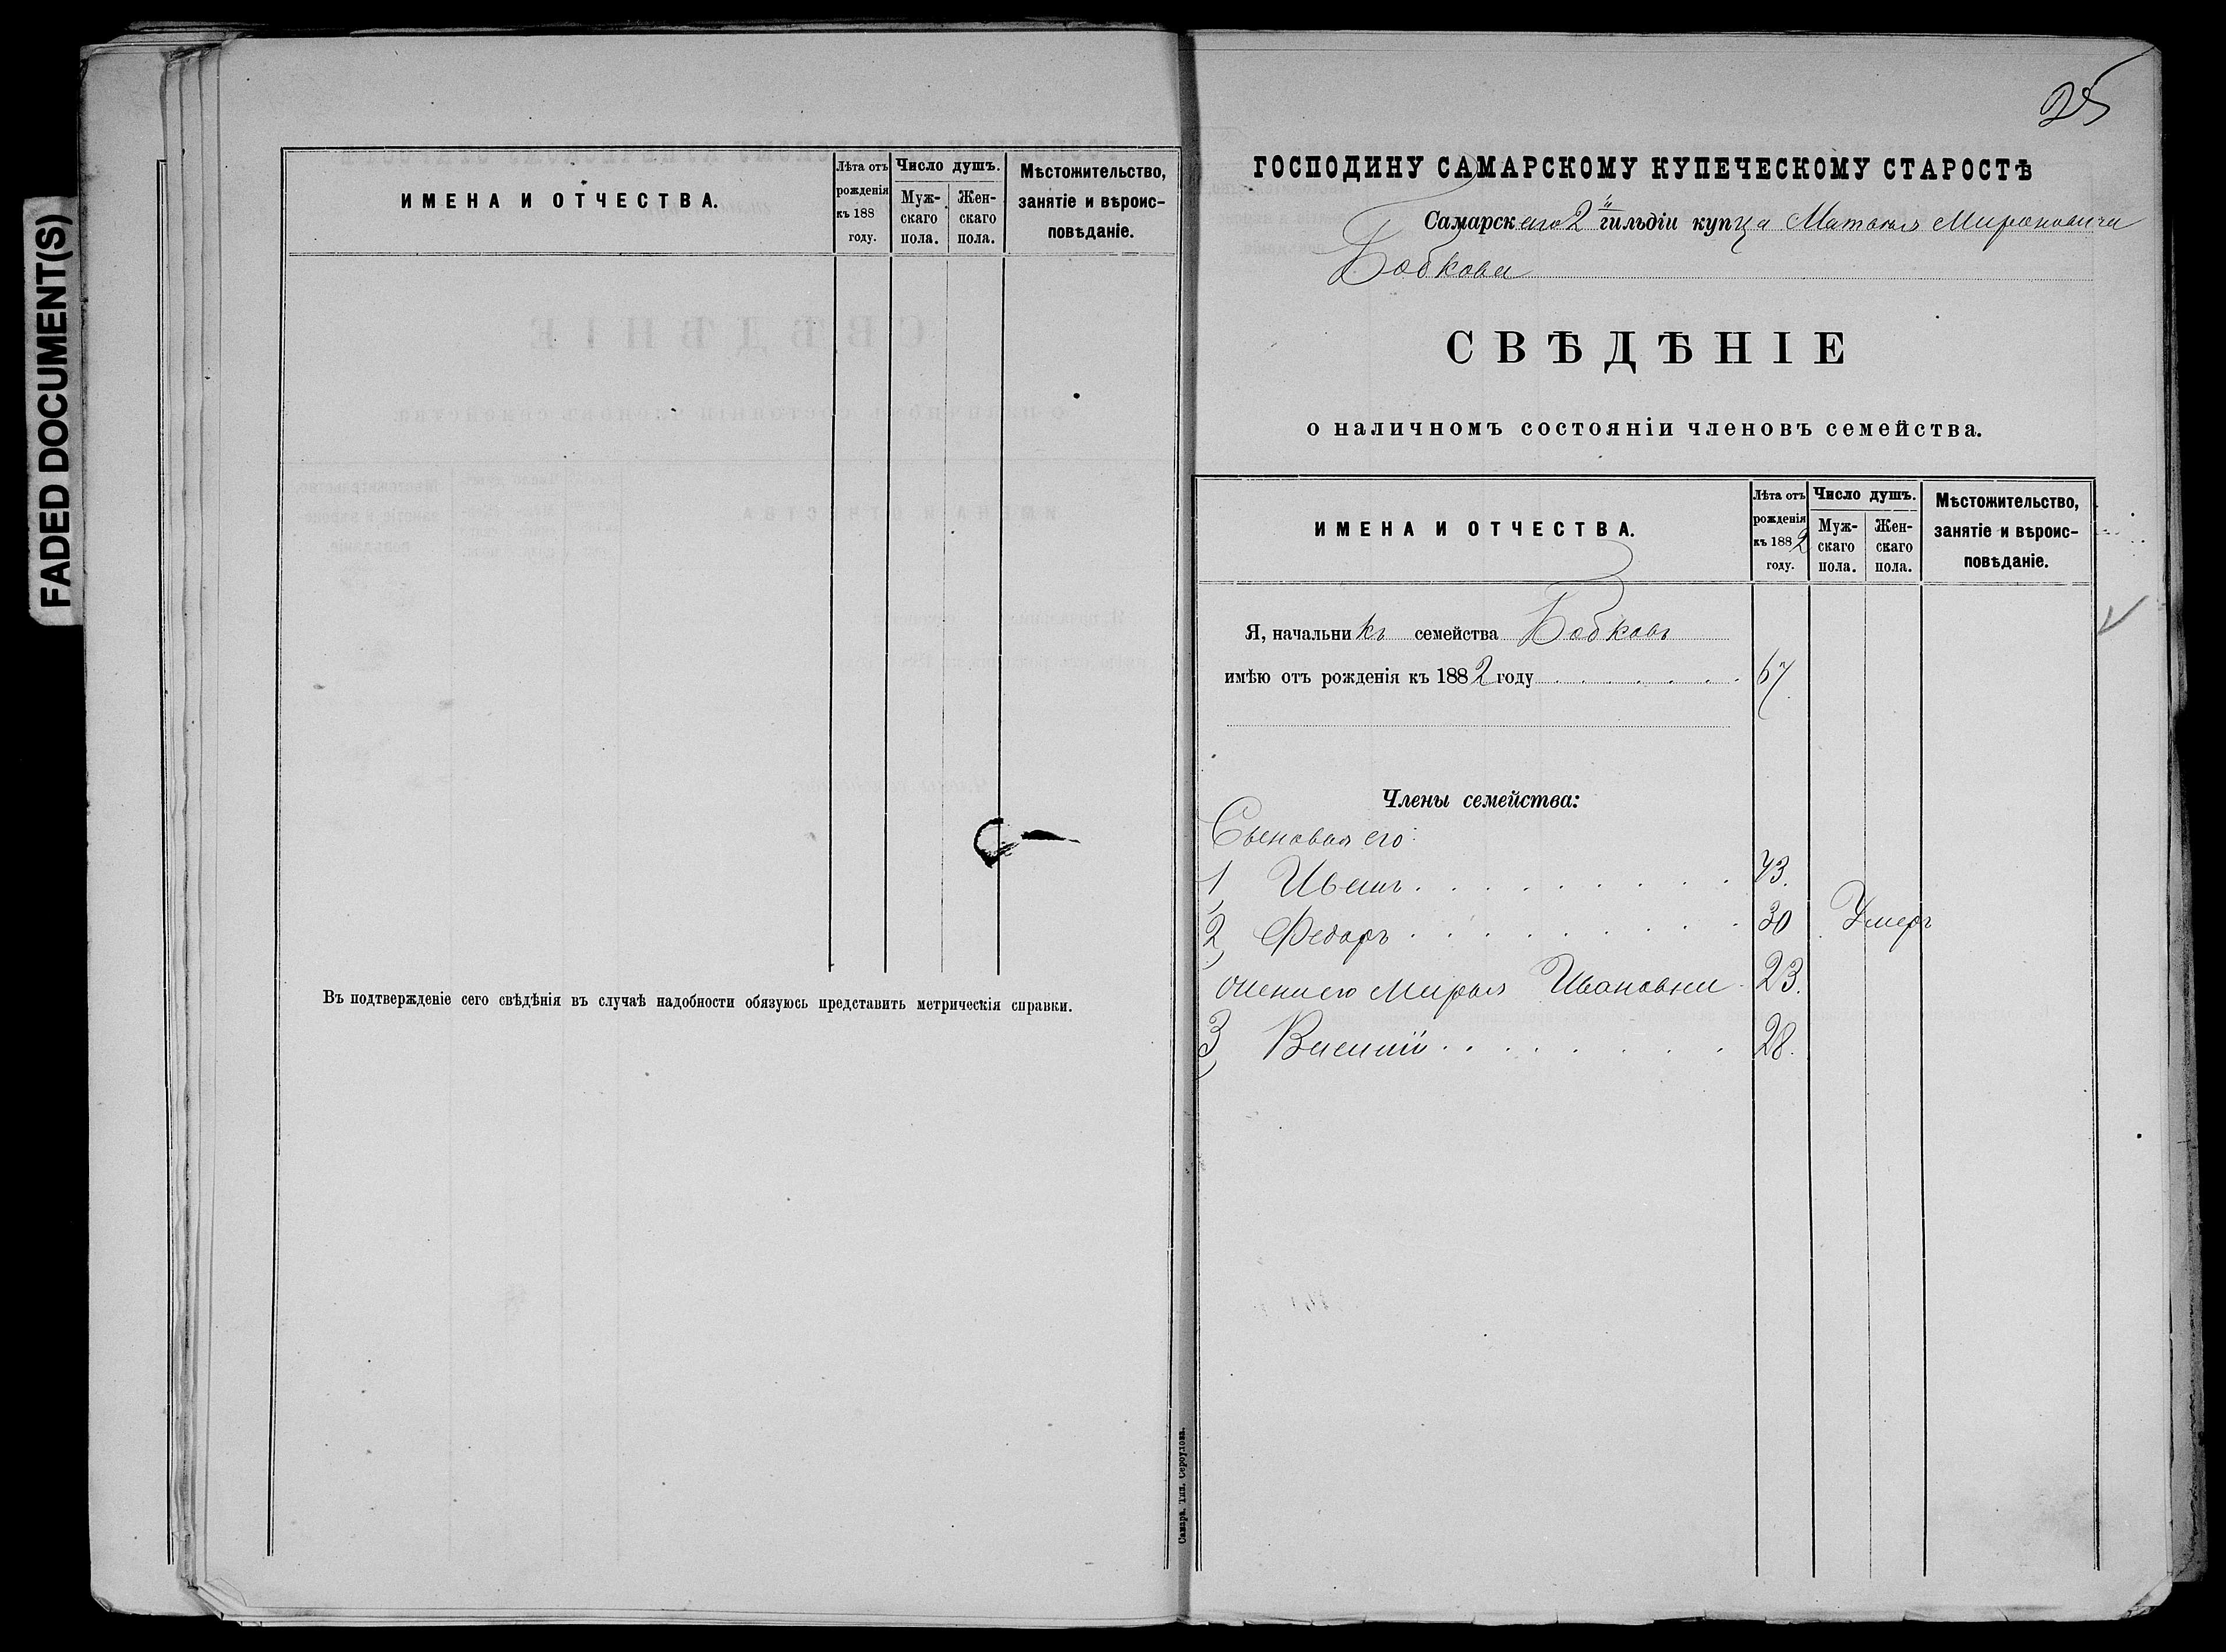 FADED DOCUMENT(S)
ИМЕНА И ОТЧЕСТВА.
Лѣта отъ рожденія къ 188 году.
Число душъ.
Мужскаго пола.
Женскаго пола.
Мѣстожительство, занятіе и вѣроисповѣданіе.
Въ подтвержденіе сего свѣдѣнія въ случаѣ надобности обязуюсь представить метрическія справки.
Самара. Тип. Серулова.
25
ГОСПОДИНУ САМАРСКОМУ КУПЕЧЕСКОМУ СТАРОСТѢ
Самарскаго 2й гильдіи купца Матвѣя Мироновича
Бобкова
СВѢДѢНІЕ
о наличномъ состояніи членовъ семейства.
ИМЕНА И ОТЧЕСТВА.
Лѣта отъ рожденія къ 1882 году.
Число душъ.
Мужскаго пола.
Женскаго пола.
Мѣстожительство, занятіе и вѣроисповѣданіе.
Я, начальникъ семейства Бобковъ
имѣю отъ рожденія къ 1882 году 67
Члены семейства:
Сыновья его:
1, Иванъ 43.
2, Федоръ 30 Умеръ
Жена его Марья Ивановна 23.
3, Василій 28.